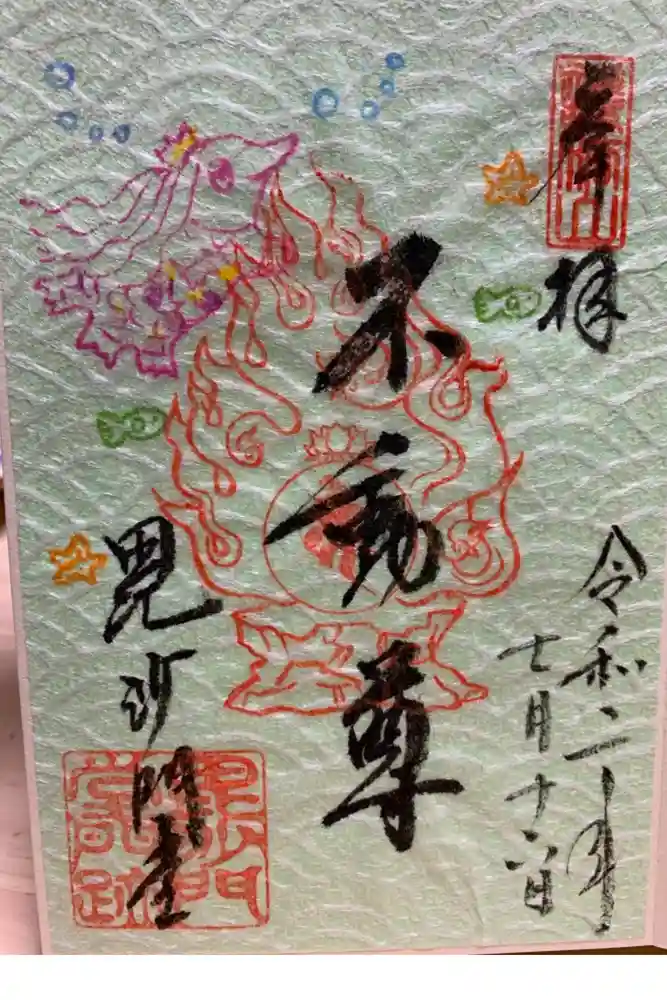 奉拝
不動尊
令和二年
七月十六日
毘沙門堂